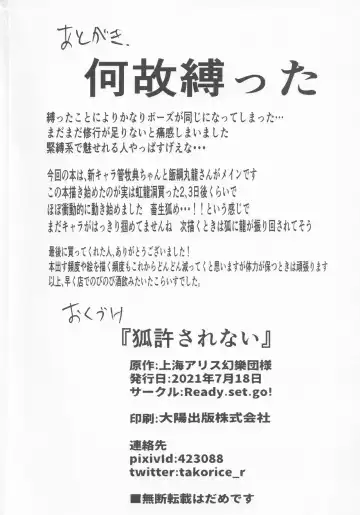 あとがき、
何故縛った
縛ったことによりかなりポーズが同じになってしまった…
まだまだ修行が足りないと痛感しまいました
緊縛系で魅せれる人やっぱすげえな・・・
今回の本は、新キャラ菅牧典ちゃんと飯綱丸龍さんがメインです
この本描き始めたのが実は虹龍洞買った2,3日後くらいで
ほぼ衝動的に動き始めました 畜生狐め・・・！！という感じで
まだキャラがはっきり掴めてませんね 次描くときは狐に龍が振り回されてそう
最後に買ってくれた人、ありがとうございました！
本出す頻度や絵を描く頻度もこれからどんどん減ってくと思いますが体力が保つときは頑張ります
以上、早く店でのびのび酒飲みたいたこらいすでした。
おくづけ
『狐許されない』
原作:上海アリス幻樂団様
発行日:2021年7月18日
サークル:Ready.set.go!
印刷:大陽出版株式会社
連絡先
pixivId:423088
twitter:takorice_r
■無断転載はだめです